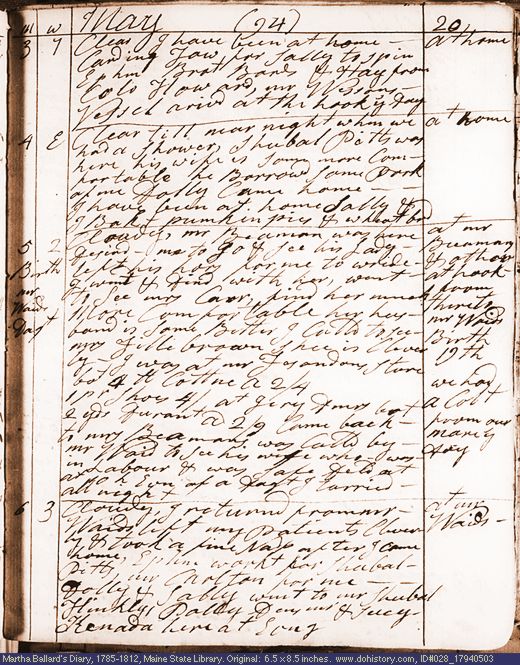 m w May (94) 20
3 7 Clear. I have been at home – at home
Carding Tow for Sally to spin
Ephm Brot Bords & Hay from
Colo Howards, mr
Vessel arivd at the hook ys Day
4 E Clear till near night when we at home
had a shower. Shubal Pitts was
here his wife is some more Com
fortable he Borrow Some Pork
of me Dolly Came home –
I have been at home Sally &
I Bakt pumkin pies & wheat bd
5 2 Cloudy. mr Beaman was here at mr
desird me to go & see his Lady Beamans
Birth left his hors for me to wride & at hook
mr I went & find with her, went from
Waids to see mrs Carr, find her much there to
Dagt more Comfortable her hus mr Waids
band is Some Better. I Calld to see Birth
mrs Fillebrown shee is Clever 19th
by. I was at mr Store
bot 4 lb Cottne @ 2/4 we had
1 pr Shoes 4/, at a Colt
yds @ 2/9 Came back from our
to mrs Beamans, was Calld by marey
mr Waid to see his wife who was Day
in Labour & was safe Delivd at
of a Dagt I tarried
all night
6 3 Cloudy. I returnd from mr at mr
Waids left my Patients Clever Waids –
by & took a fine Nap after I came
home, Ephm workt for Shubal
Pitts, mr Carlton for me –
Dolly & Sally went to mr Shubal
Hinkly, Polly & Sucey
Kenada here at Evng
Martha Ballard's Diary, 1785-1812, Maine State Library. Original: 6.5 x 8.5 inches. www.dohistory.com, ID#028_17940503